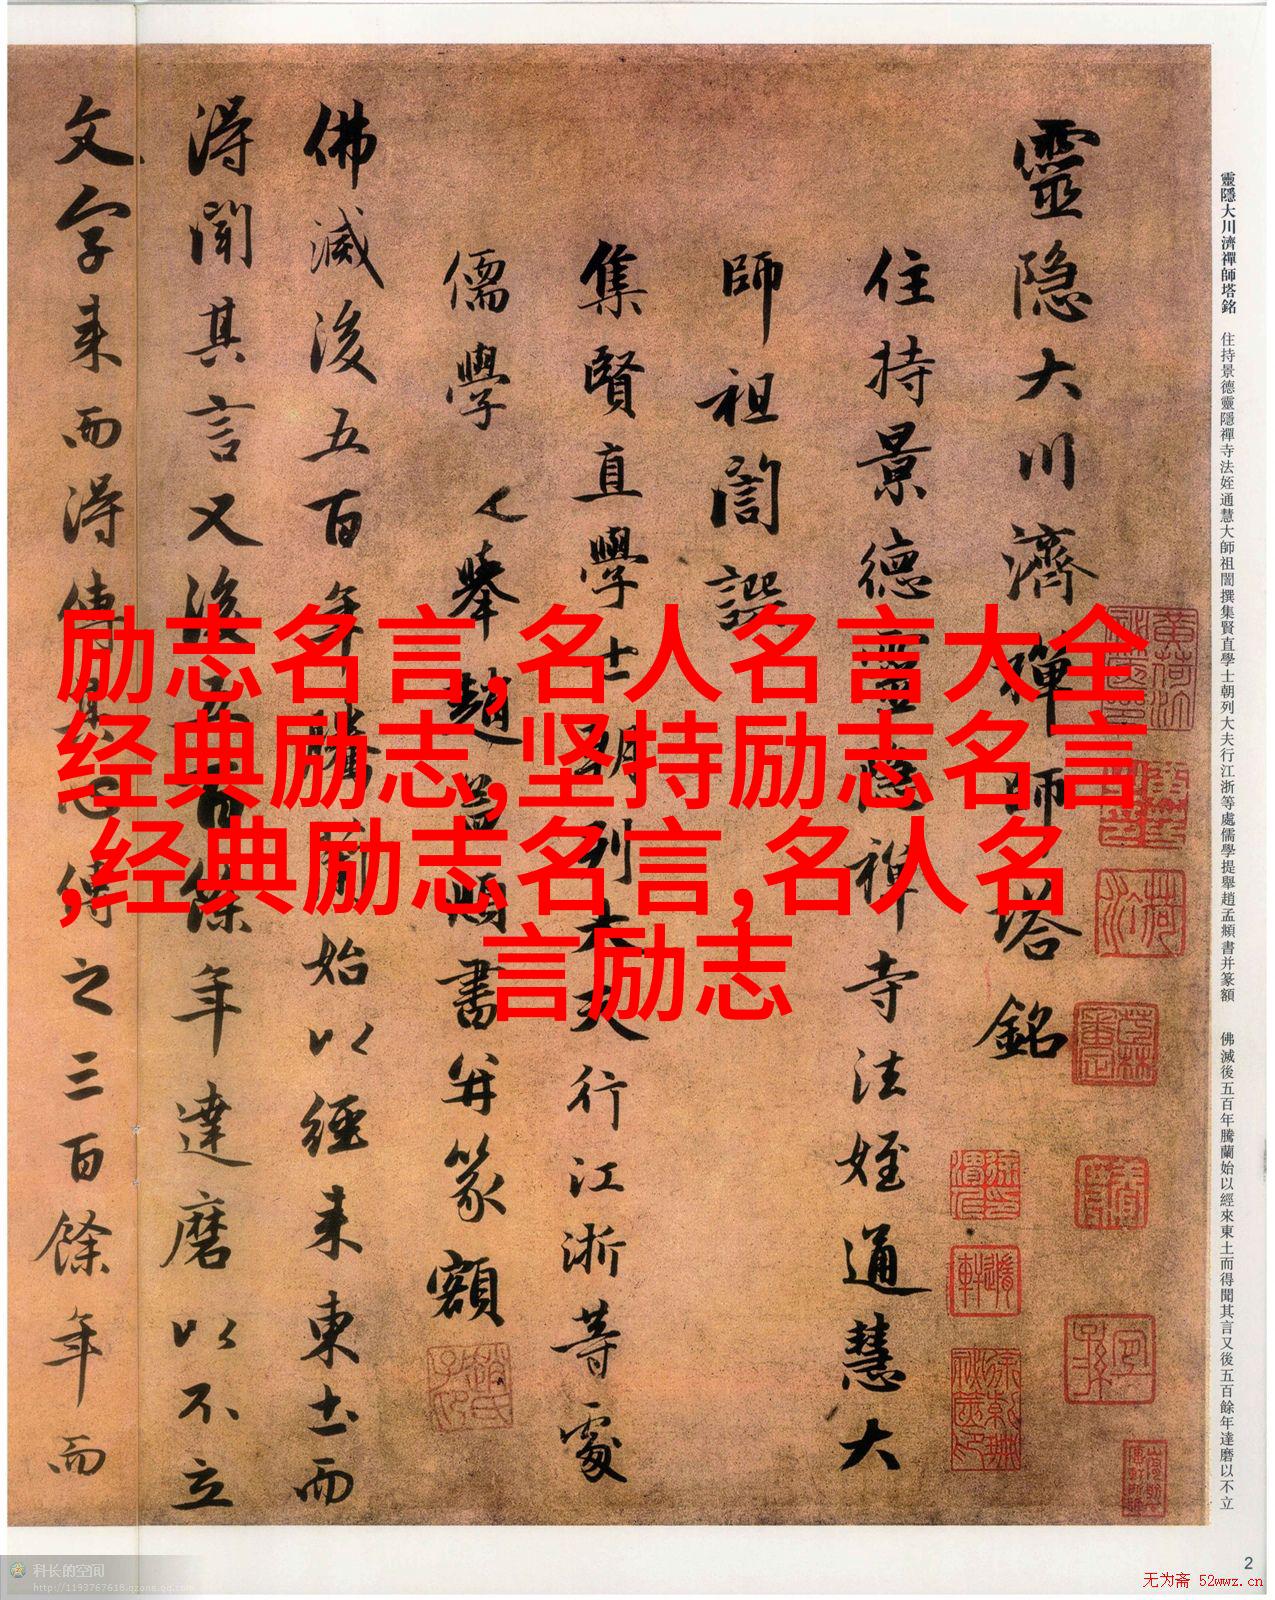 靈隱大川濟禪師塔銘
住持景德靈隱禪寺法姪通慧大
師祖誾譔
集賢直學士朝列大夫行江浙等處
儒學提舉趙孟頫書并篆額
佛滅後五百年騰蘭始以經来東土而
得聞其言又後五百餘年達磨以不立
文字来而得傳其心傳之三百餘年而
靈隱大川濟禪師塔銘 住持景德靈隱禪寺法姪通慧大師祖誾撰集賢直學士朝列大夫行江浙等處儒學提舉趙孟頫書并篆額 佛滅後五百年騰蘭始以經來東土而得聞其言又後五百餘年達磨以不立
励志名言,名人名言大全
经典励志,坚持励志名言
,经典励志名言,名人名
言励志
2
科长的空间
http://1193767618.qzone.qq.com
无为斋 52wwz.cn